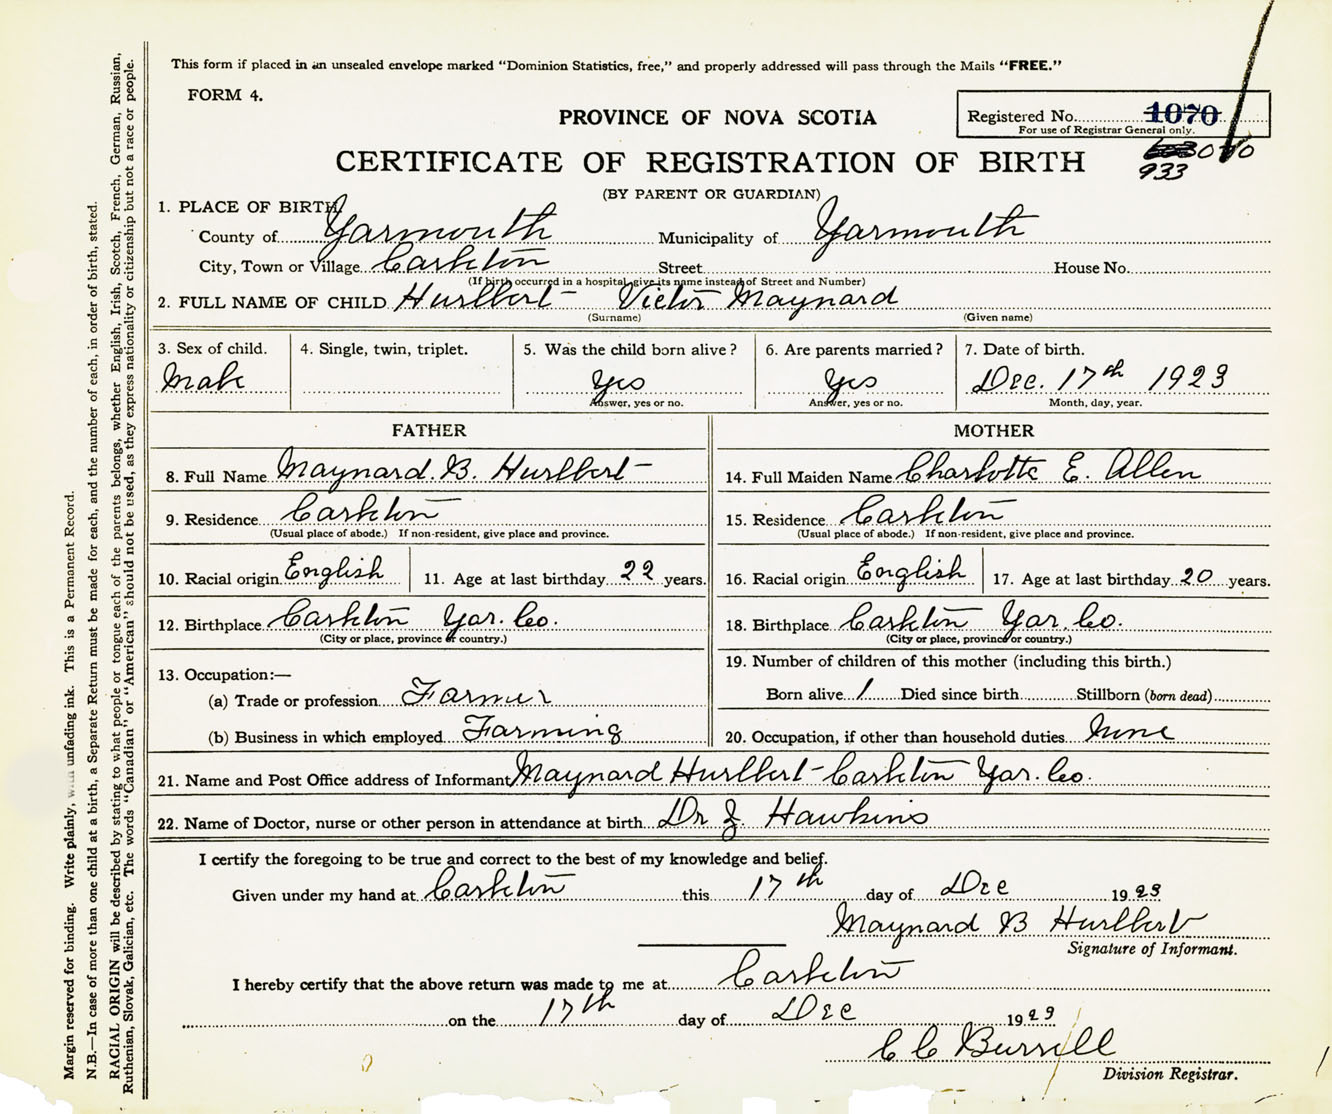 This form if placed in an unsealed envelope marked "Dominion Statistics, free," and properly addressed will pass through the Mails "FREE."
FORM 4.
PROVINCE OF NOVA SCOTIA
Registered No. 1070
For use of Registrar General only.
933
CERTIFICATE OF REGISTRATION OF BIRTH
(BY PARENT OR GUARDIAN)
1. PLACE OF BIRTH
County of Yarmouth Municipality of Yarmouth
City, Town or Village Carleton Street House No.
(If birth occurred in a hospital give its name instead of Street and Number)
2. FULL NAME OF CHILD Hurlbert Victor Maynard
(Surname) (Given name)
3. Sex of child. 4. Single, twin, triplet. 5. Was the child born alive? 6. Are parents married? 7. Date of birth.
Male Yes Yes Dec. 17th 1923
Answer, yes or no. Answer, yes or no. Month, day, year.
FATHER MOTHER
8. Full Name Maynard. B. Hurlbert 14. Full Maiden Name Charlotte E. Allen
9. Residence Carleton 15. Residence Carleton
(Usual place of abode.) If non-resident, give place and province. (Usual place of abode.) If non-resident, give place and province.
10. Racial origin English 11. Age at last birthday 22 years. 16. Racial origin English 17. Age at last birthday 20 years.
12. Birthplace Carleton Yar. Co. 18. Birthplace Carleton Yar. Co.
(City or place, province or country.) (City or place, province or country.)
13. Occupation:— 19. Number of children of this mother (including this birth.)
(a) Trade or profession Farmer Born alive 1 Died since birth Stillborn (born dead)
(b) Business in which employed Farming 20. Occupation, if other than household duties None
21. Name and Post Office address of Informant Maynard Hurlbert - Carleton Yar. Co.
22. Name of Doctor, nurse or other person in attendance at birth Dr Hawkins
I certify the foregoing to be true and correct to the best of my knowledge and belief.
Given under my hand at Carleton this 17th day of Dec 1923
Maynard B Hurlbert
Signature of Informant.
I hereby certify that the above return was made to me at Carleton
on the 17th day of Dec 1923
C C Burrill
Division Registrar.
Margin reserved for binding. Write plainly, with unfading ink. This is a Permanent Record.
N.B.—In case of more than one child at a birth, a Separate Return must be made for each, and the number of each, in order of birth, stated.
RACIAL ORIGIN will be described by stating to what people or tongue each of the parents belongs, whether English, Irish, Scotch, French, German, Russian,
Ruthenian, Slovak, Galician, etc. The words "Canadian" or "American" should not be used, as they express nationality or citizenship but not a race or people.